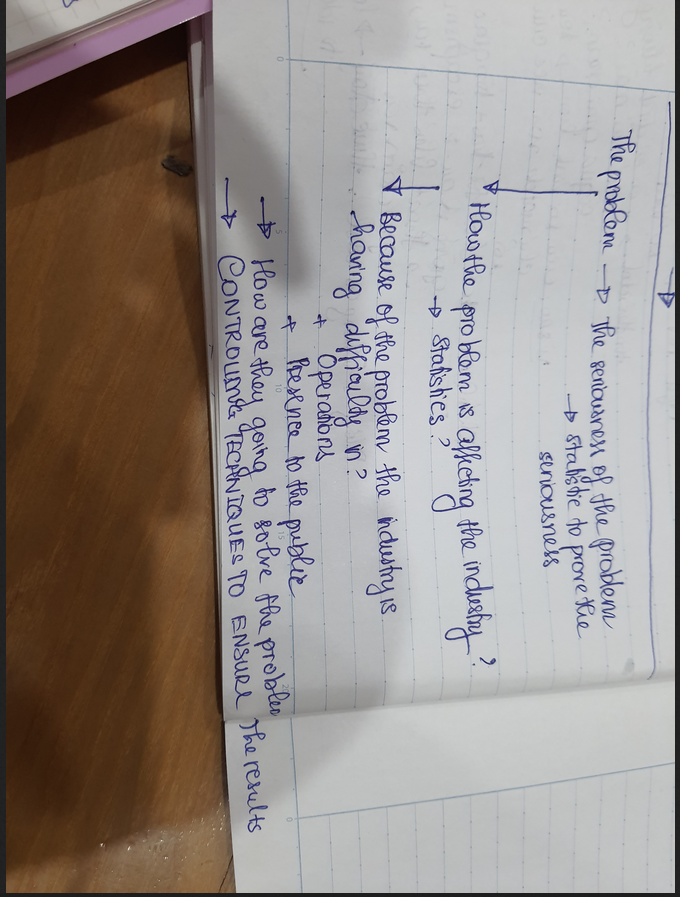 The problem → The seriousness of the problem
→ statistic to prove the
seriousness
→ How the problem is affecting the industry?
→ statistics?
→ Because of the problem the industry is
having difficulty in?
+ Operations
+ Presence to the public
→ How are they going to solve the problem
→ CONTROLLING TECHNIQUES TO ENSURE The results